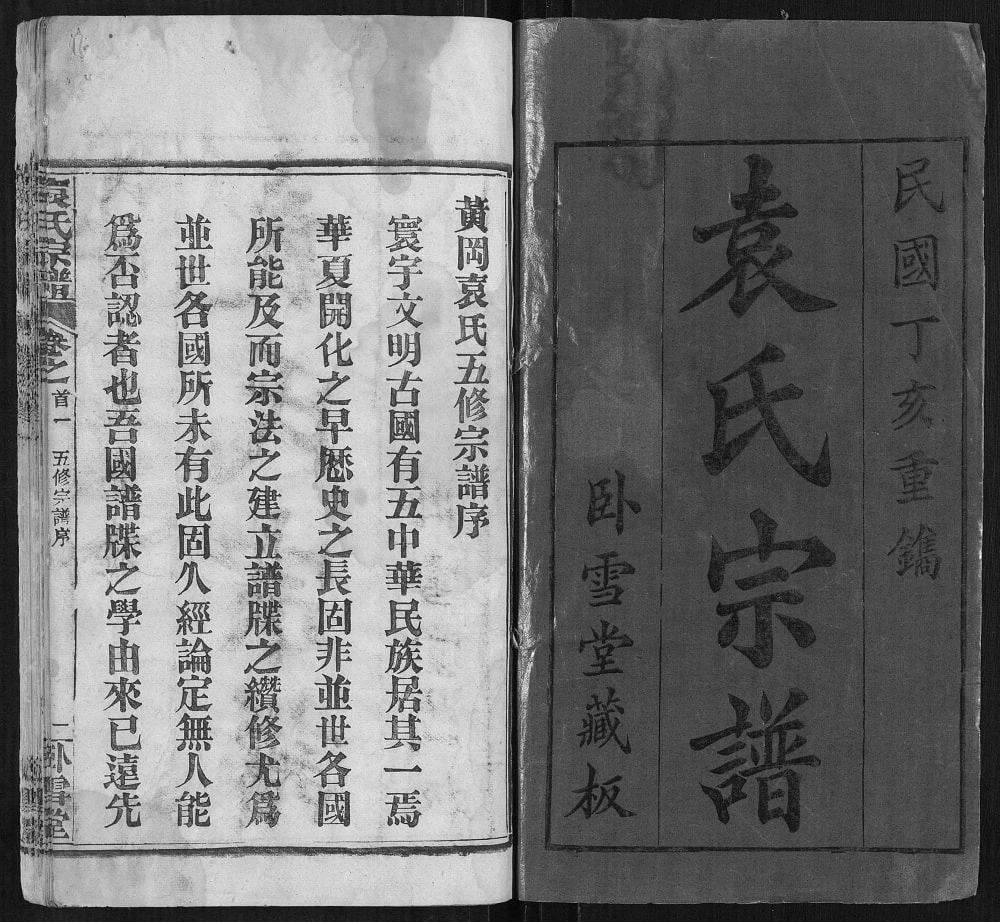 民國丁亥重鐫
袁氏宗譜
卧雪堂藏板
黃岡袁氏五修宗譜序
寰宇文明古國有五中華民族居其一焉
華夏開化之早歷史之長固非並世各國
所能及而宗法之建立譜牒之纘修尤爲
並世各國所未有此固久經論定無人能
爲否認者也吾國譜牒之學由來已遠先
袁氏宗譜 卷之首一 五修宗譜序 一 卧雪堂